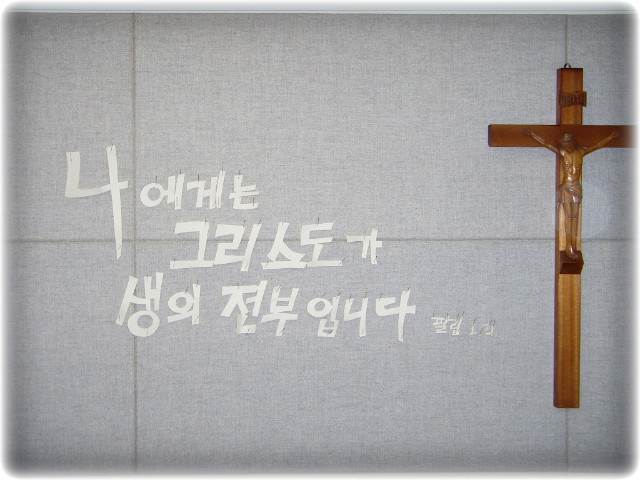 나에게는
그리스도가
생의 전부입니다 필립 1,21